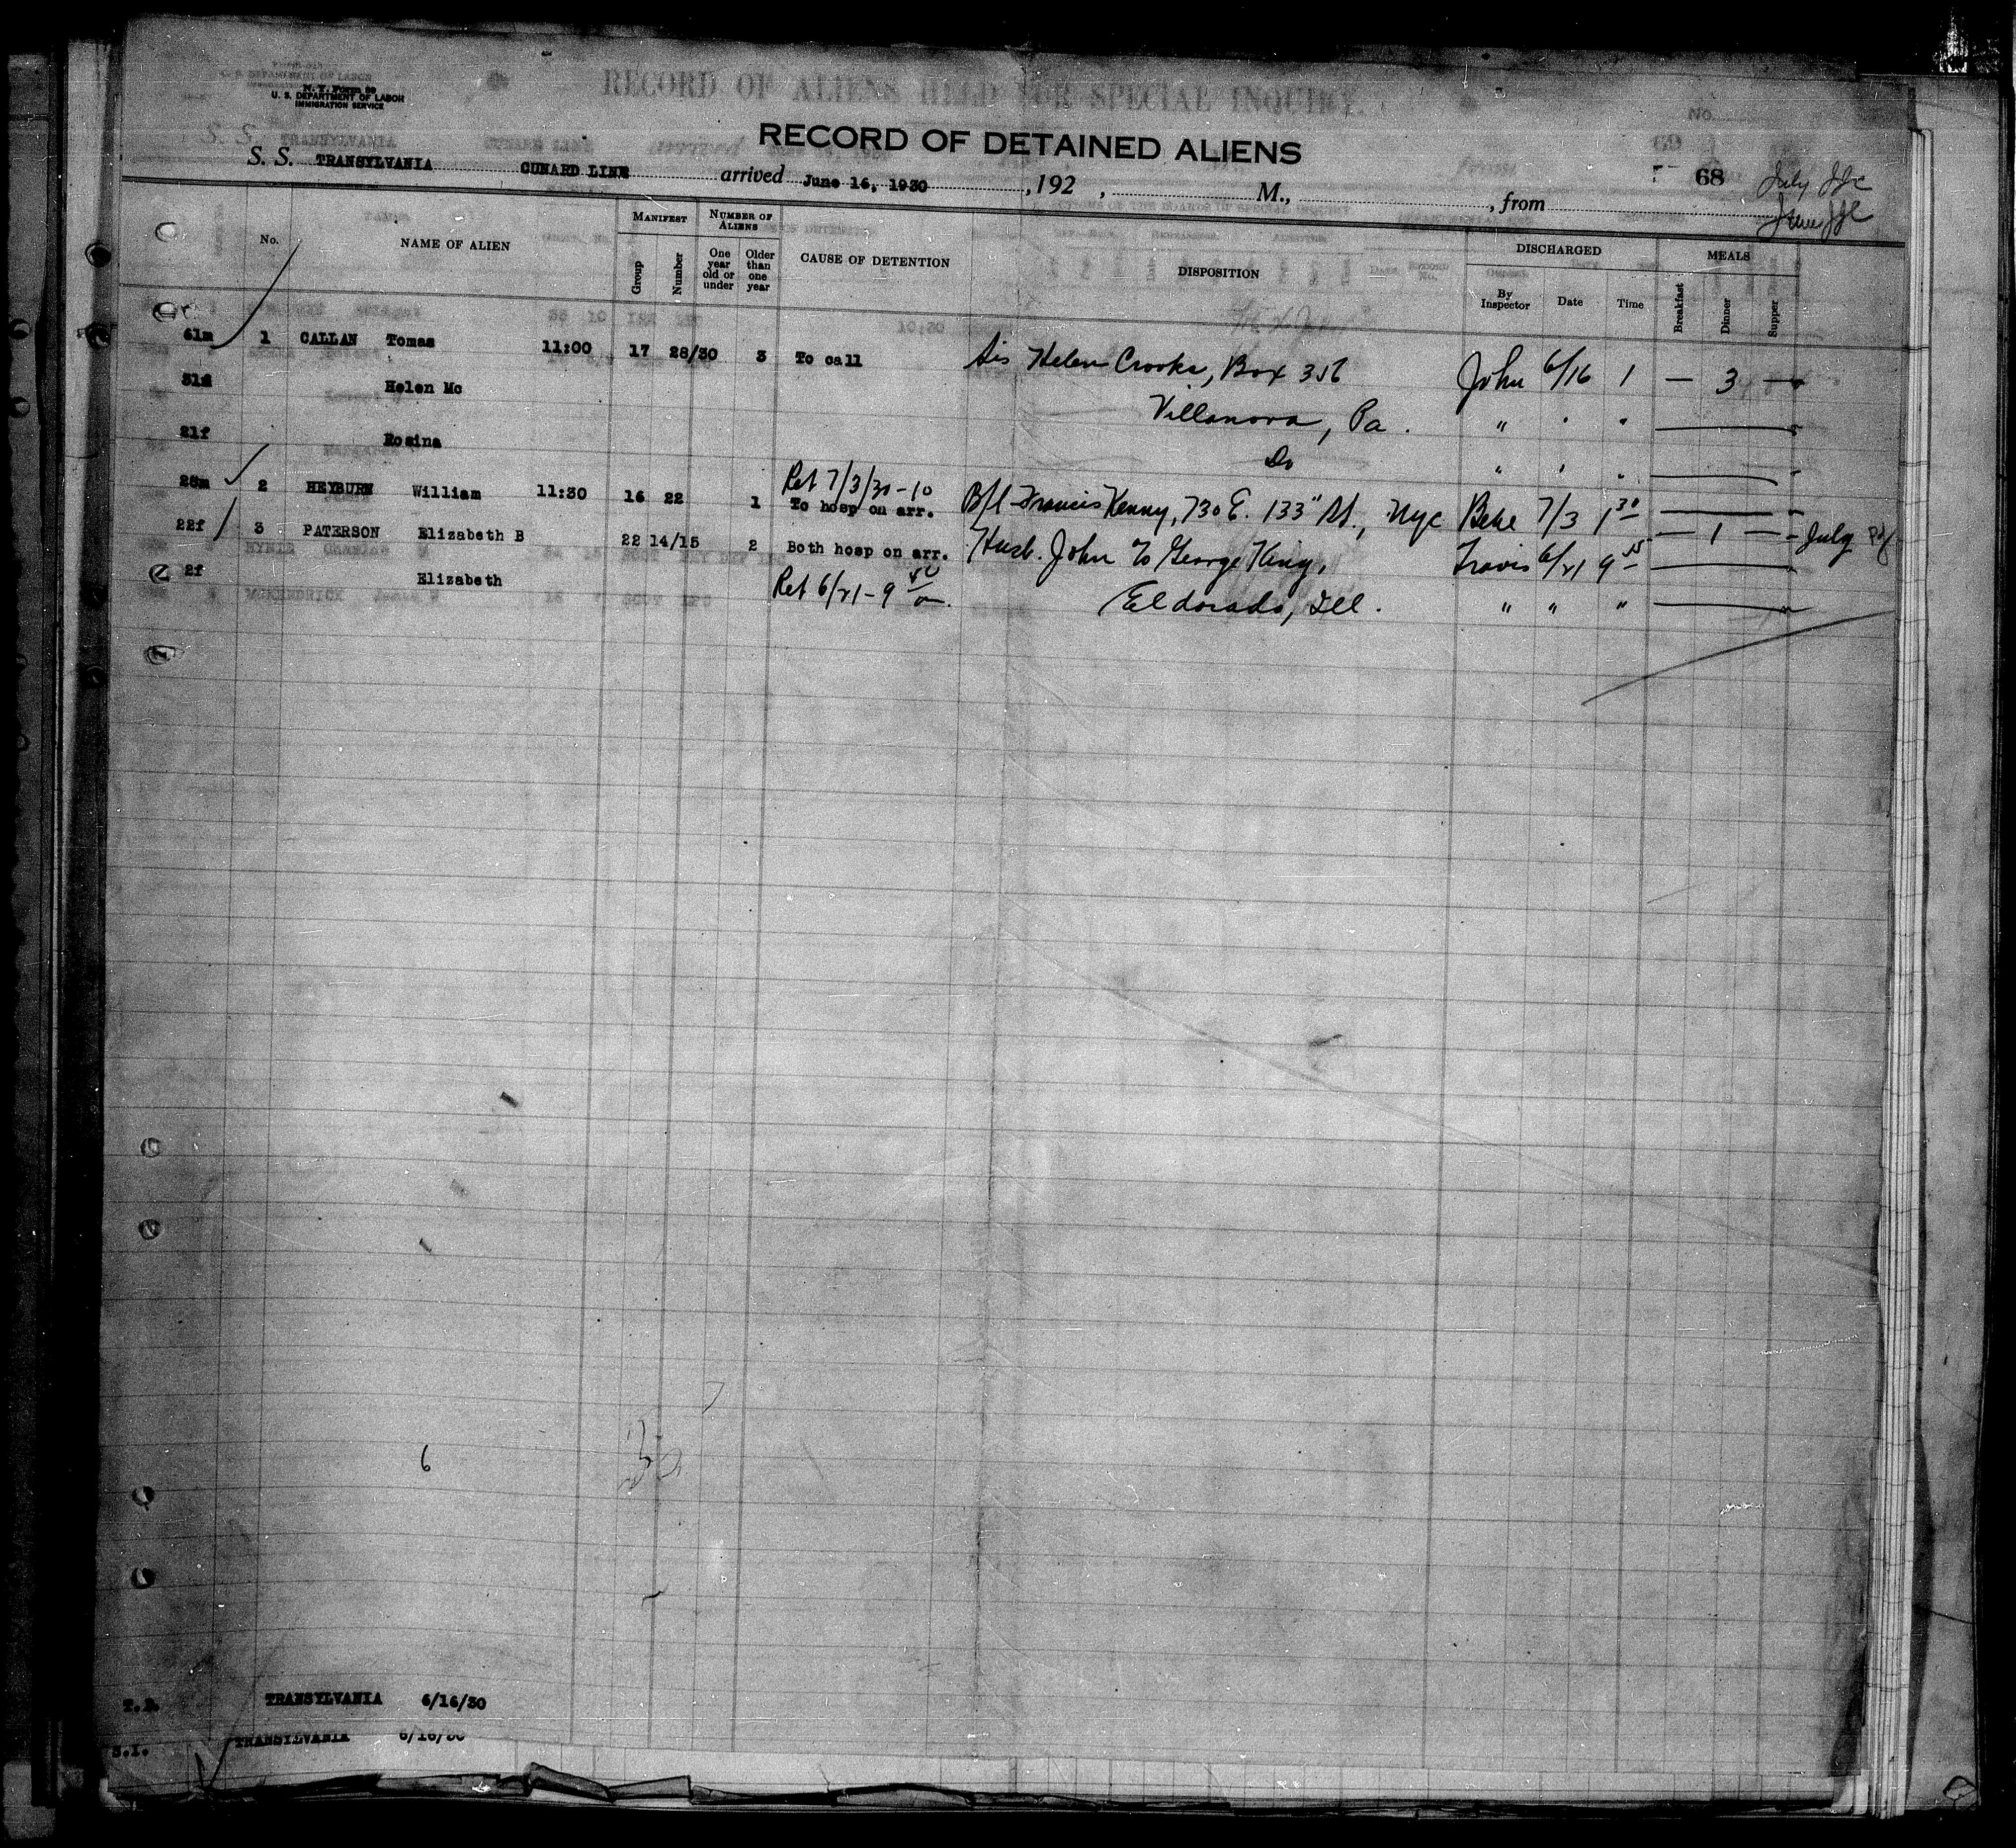 N. Y. Form 99
U. S. DEPARTMENT OF LABOR
IMMIGRATION SERVICE
RECORD OF ALIENS HELD FOR SPECIAL INQUIRY
RECORD OF DETAINED ALIENS
S. S. TRANSYLVANIA CUNARD LINE arrived June 16, 1930, 192 , M., , from
68
July
June
No. NAME OF ALIEN MANIFEST Group Number NUMBER OF ALIENS One year old or under Older than one year CAUSE OF DETENTION DISPOSITION DISCHARGED By Inspector Date Time MEALS Breakfast Dinner Supper
61m 1 CALLAN Tomas 11:00 17 28/30 3 To call Sis Helen Crooks, Box 356 John 6/16 1 — 3 —
31f Helen Mc Villanova, Pa. " " "
21f Rosina Do " " "
Ret 7/3/30-10
28m 2 HEYBURN William 11:30 16 22 1 To hosp on arr. B/l Francis Kenny, 730 E. 133" St., Nyc 7/3 1 30 — 1 — July
22f 3 PATERSON Elizabeth B 22 14/15 2 Both hosp on arr. Husb. John % George King, Travis 6/21 9
2f Elizabeth Ret 6/21-9 50 Eldorado, Ill. " " "
6
T.D. TRANSYLVANIA 6/16/30
S.I. TRANSYLVANIA 6/16/30